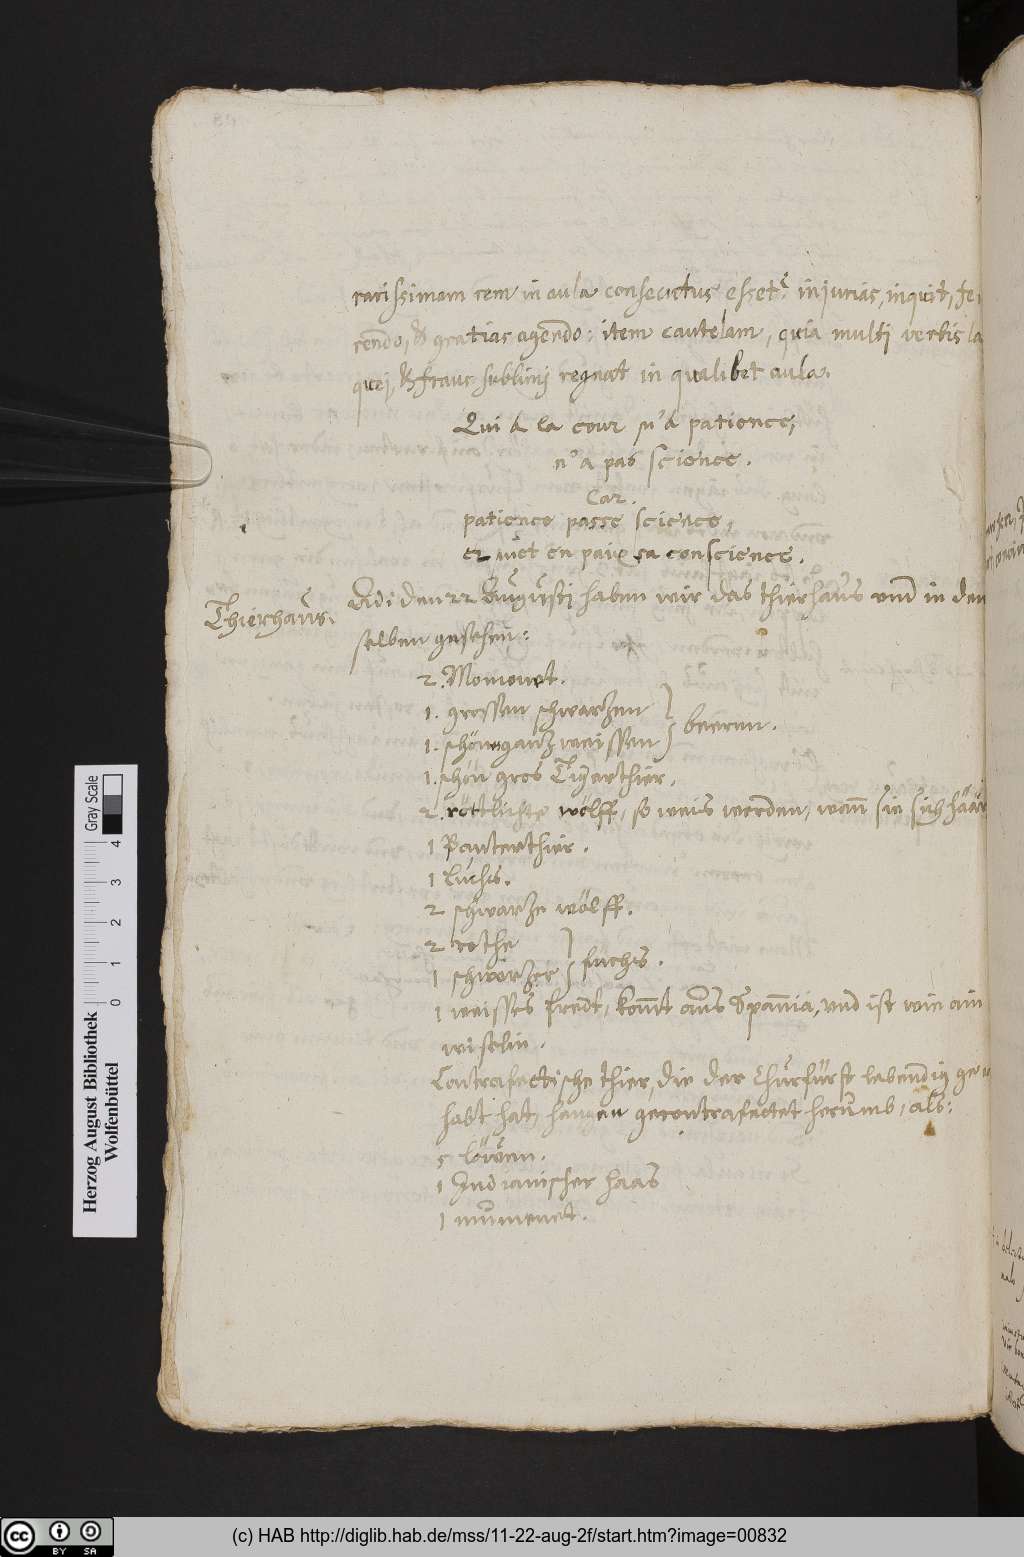 rarissimam rem in aula consecutus esset? injurias, inquit, fe
rendo, & gratias agendo: item cautelam, quia multi verbis la
quej, & fraus sublimj regnat in qualibet aula.
Qui a la cour n'a patience,
n'a pas science.
Car.
patience passe science,
et met en paix sa conscience.
Thierhaus.
Adi den 22 Augusti haben wir das thierhaus vnd in den
selben gesehen:
2. Momonet.
1. grossen schwarzen
1. schön ganz weissen
beieren.
1. schön gros Tigerthier.
2. röttlichte wölff, so weis werden, wann sie sich häär
1 Panterthier.
1 Luchs.
2 schwarze wölff.
2 rothe
1 schwarzer
fuchs.
1 weisses fredt, kommt aus Spannia, vnd ist wie ain
wiselin.
Contrafectische thier, die der Churfürst lebendig ge
habt hat, hangen gecontrafectet herumb, als:
5 löwen.
1 Indianischer haas
1 mumenet.
Gray Scale
4
3
2
1
0
Herzog August Bibliothek
Wolfenbüttel
cc BY SA
(c) HAB http://diglib.hab.de/mss/11-22-aug-2f/start.htm?image=00832